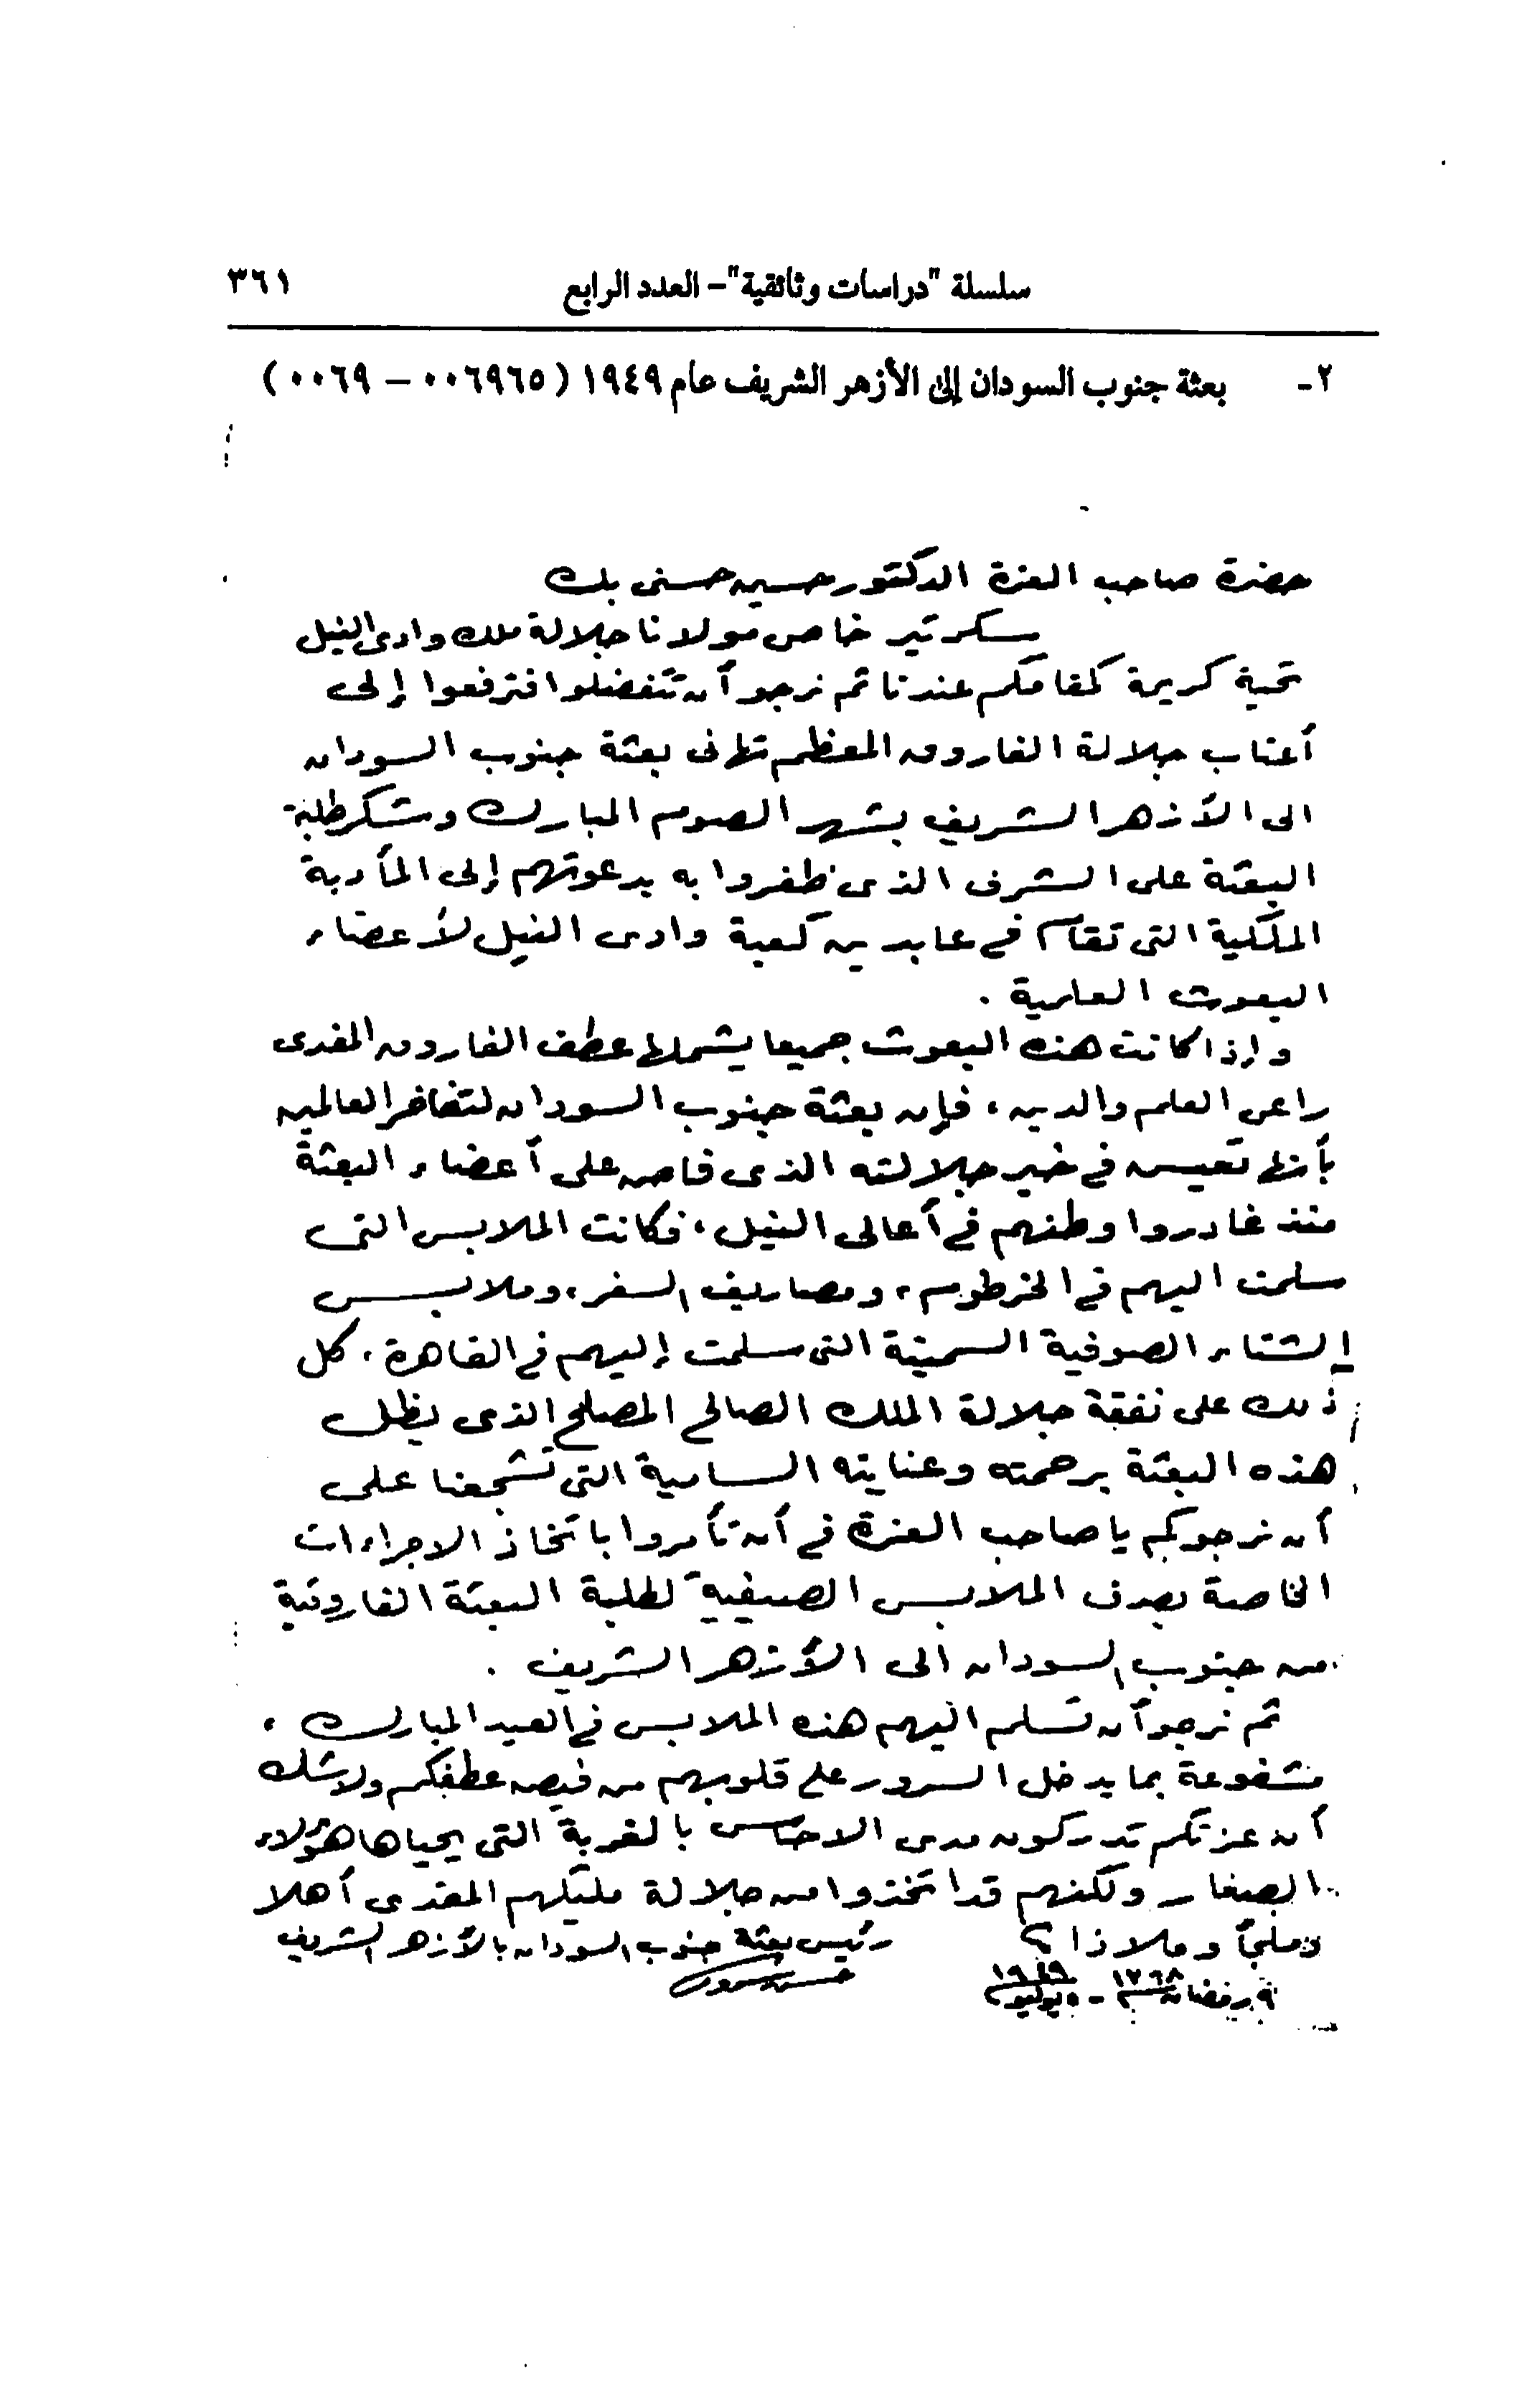 سلسلة "دراسات وثائقية" – العدد الرابع ٣٦١
٢- بعثة جنوب السودان إلى الأزهر الشريف عام ١٩٤٩ (٠٠٦٩٦٥ – ٠٠٦٩)
حضرة صاحب العزة الدكتور حسين حسنى بك
سكرتير خاص مولانا جلالة ملك وادى النيل
تحية كريمة كمقامكم عندنا ثم نرجو أن تتفضلوا فترفعوا إلى
أعتاب جلالة الفاروق المعظم تهانى بعثة جنوب السودان
الى الأزهر الشريف بشهر الصوم المبارك وشكر طلبة
البعثة على الشرف الذى ظفروا به بدعوتهم إلى المأدبة
الملكية التى تقام فى عابدين كعبة وادى النيل لأعضاء
البعوث العلمية .
وإذا كانت هذه البعوث جميعا يشملها عطف الفاروق المفدى
راعى العلم والدين ، فإن بعثة جنوب السودان لتفاخر العالمين
بأنها تعيش فى خير جلالته الذى فاض على أعضاء البعثة
منذ غادروا وطنهم فى أعالى النيل ، فكانت الملابس التى
سلمت اليهم فى الخرطوم ، ومصاريف السفر ، وملابس
الشتاء الصوفية الثمينة التى سلمت إليهم فى القاهرة . كل
ذلك على نفقة جلالة الملك الصالح المصلح الذى يظل
هذه البعثة برحمته وعنايته السامية التى تشجعنا على
أن نرجوكم يا صاحب العزة فى أن تأمروا باتخاذ الاجراءات
الخاصة بصرف الملابس الصيفية لطلبة البعثة الفاروقية
من جنوب السودان الى الأزهر الشريف .
ثم نرجو أن تسلم اليهم هذه الملابس فى العيد المبارك ،
مشفوعة بما يدخل السرور على قلوبهم من فيض عطفكم ولا شك
أن عزتكم تدركون مدى الاحساس بالغربة التى يحياها هؤلاء
الصغار ولكنهم قد اتخذوا من جلالة مليكهم المفدى أهلا
وملجأ وملاذا ؟
رئيس بعثة جنوب السودان بالأزهر الشريف
٩ رمضان ١٣٦٨ - ٥ يوليو ١٩٤٩